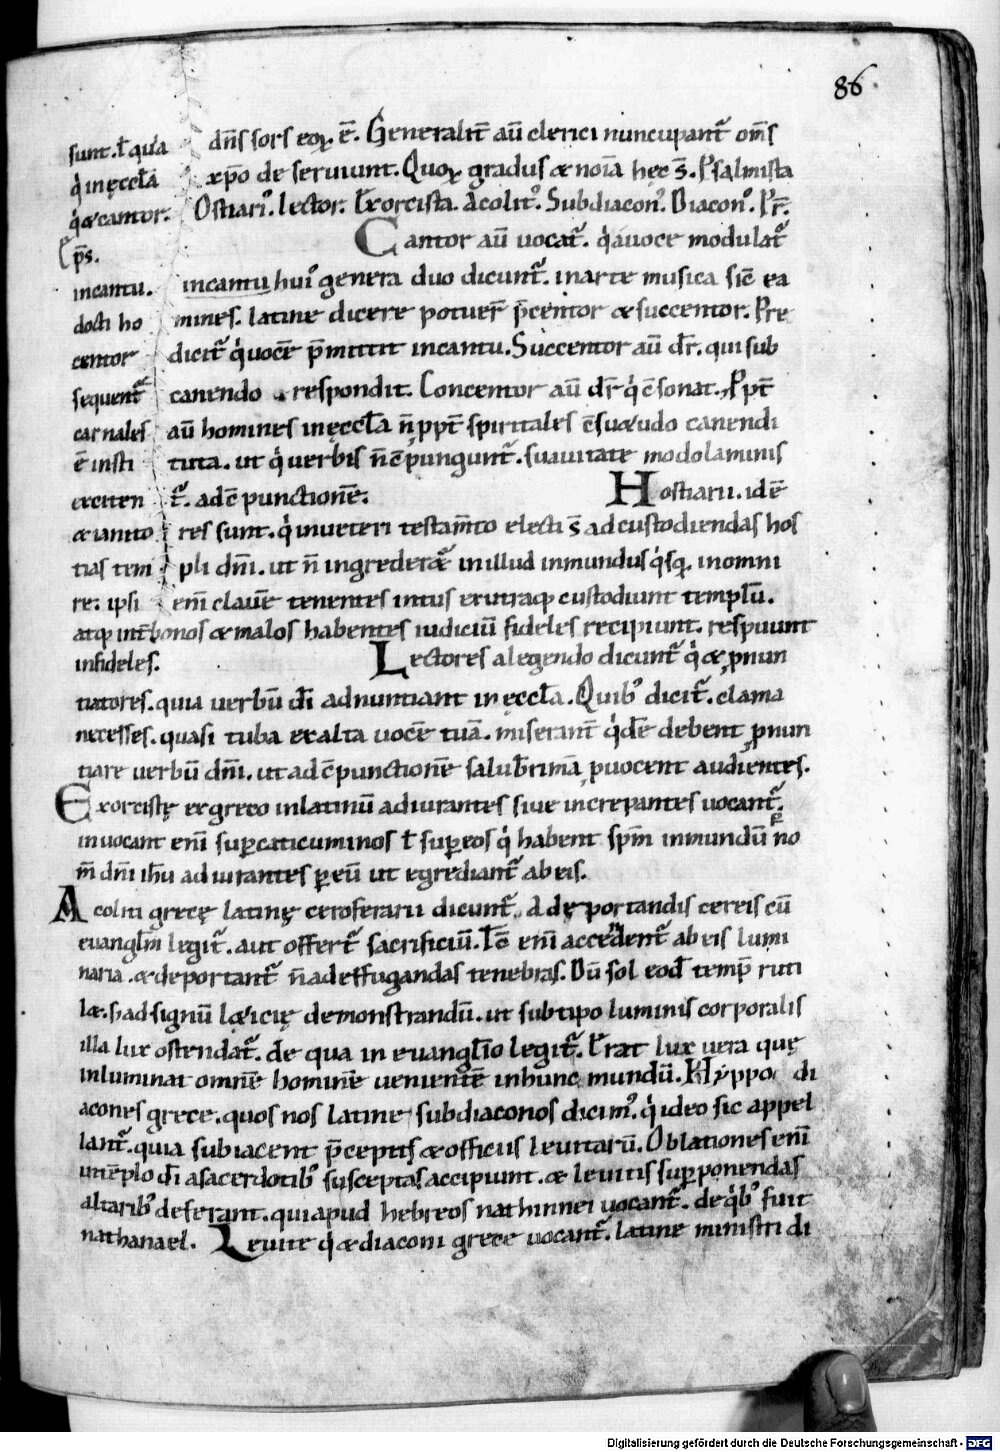 86
sunt. ł quia dn̄s sors eoꝝ ē. Generalit̄ aū clerici nuncupant᷑ om̄s
q̇ in ęccła xp̄o deserviunt. Quoꝝ gradus & noīa hęc s̄. Psalmista
q̇ & cantor. Ostiari᷒. Lector. Exorcista. Acolit᷒. Subdiacon᷒. Diacon᷒. Pr̄.
Ep̄s. Cantor aū vocat᷑. q̇a voce modulat᷑
in cantu. in cantu hui᷒ genera duo dicunt᷑. in arte musica sic̄ ea
docti ho mines. latine dicere potuer̄ p̄centor & succentor. Pre
centor dicit᷑ q̇ vocē p̄mittit in cantu. Succentor aū dr̄. qui sub
sequent᷑ canendo respondit. Concentor aū dr̄ q̇ c̄sonat. Ppt̄
carnales aū homines in ęccła n̄ ppt̄ spiritales c̄suetudo canendi
ē insti tuta. ut q̇ verbis n̄ c̄pungunt᷑. suavitate modolaminis
exciten t᷑. ad c̄punctionē. Hostiarii. idē
& ianito res sunt. q̇ in veteri testam̄to electi s̄ ad custodiendas hos
tias tem pli dn̄i. ut n̄ ingreder&᷑ in illud inmundus q̇sq. in omni
re: ipsi eni᷒ clavē tenentes intus ex utraq custodiunt templū.
atq int̄ bonos & malos habentes iudiciū fideles recipiunt. respuunt
infideles. Lectores a legendo dicunt᷑ q̇ & ꝓnun
tiatores. quia verbū dī adnuntiant in ęccła. Quib᷒ dicit᷑. clama
ne cesses. quasi tuba exalta vocē tuā. miserant̄ q̇dē debent ꝓnun
tiare verbū dn̄i. ut ad c̄punctionē salub̄rimā ꝓvocent audientes.
Exorcistę ex greco in latinū adiurantes sive increpantes vocant᷑.
invocant enī sup̱ caticuminos ł sup̱ eos q̇ habent sp̄m inmundū no
m̄ dn̄i ih̄u adiurantes p̱ eū ut egrediant᷑ ab eis.
Acoliti grecę latinę ceroferarii dicunt᷑. A deportandis cereis cū
evangl̄m legit᷑. aut offert᷑ sacrificiū. Tc̄ enī accendent᷑ ab eis lumi
naria. & deportant᷑ n̄ ad effugandas tenebras. Dū sol eodē temp̄ ruti
l&. s̄ ad signū l&icię demonstrandū. ut sub tipo luminis corporalis
illa lux ostendat᷑. de qua in evangl̄io legit᷑. Erat lux vera quę
inluminat omnē hominē venientē in hunc mundū. Hyppo di
acones grece. quos nos latine subdiaconos dicim᷒. q̇ ideo sic appel
lant᷑. quia subiacent p̄ceptis & officiis levitarū. Oblationes enī
in tēplo dī a sacerdotib᷒ susceptas accipiunt. & levitis sup̱ponendas
altarib᷒ deferant. qui apud hebreos nathinnei vocant᷑. de q̇b᷒ fuit
nathanael. Levite q̇ & diaconi grece vocant᷑. latine ministri di
Digitalisierung gefördert durch die Deutsche Forschungsgemeinschaft - DFG